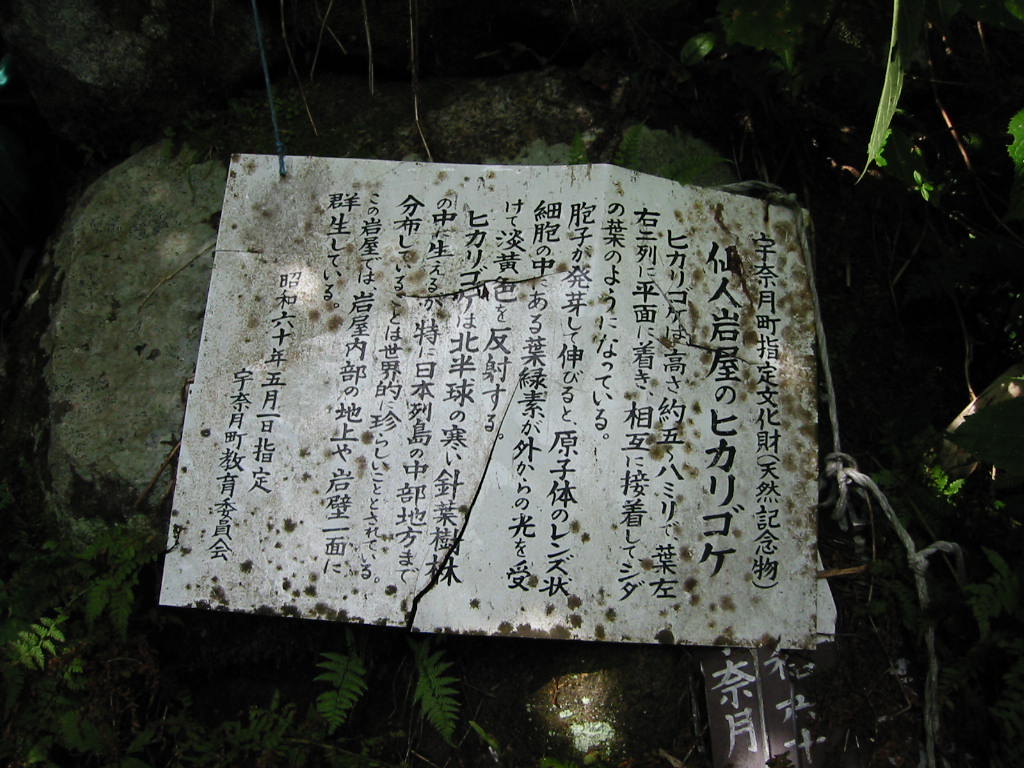 宇奈月町指定文化財(天然記念物)
仙人岩屋のヒカリゴケ
ヒカリゴケは、高さ約五~八ミリで、葉左
右二列に平面に着き、相互に接着してシダ
の葉のようになっている。
胞子が発芽して伸びると、原子体のレンズ状
細胞の中にある葉緑素が外からの光を受
けて淡黄色を反射する。
ヒカリゴケは北半球の寒い針葉樹林
の中に生えるが、特に日本列島の中部地方まで
分布している
とは世界的に珍らしいこととされている。
この岩屋では、岩屋内部の地上や岩壁一面に
群生している。
昭和六十年五月一日指定
宇奈月町教育委員会
和六十
奈月